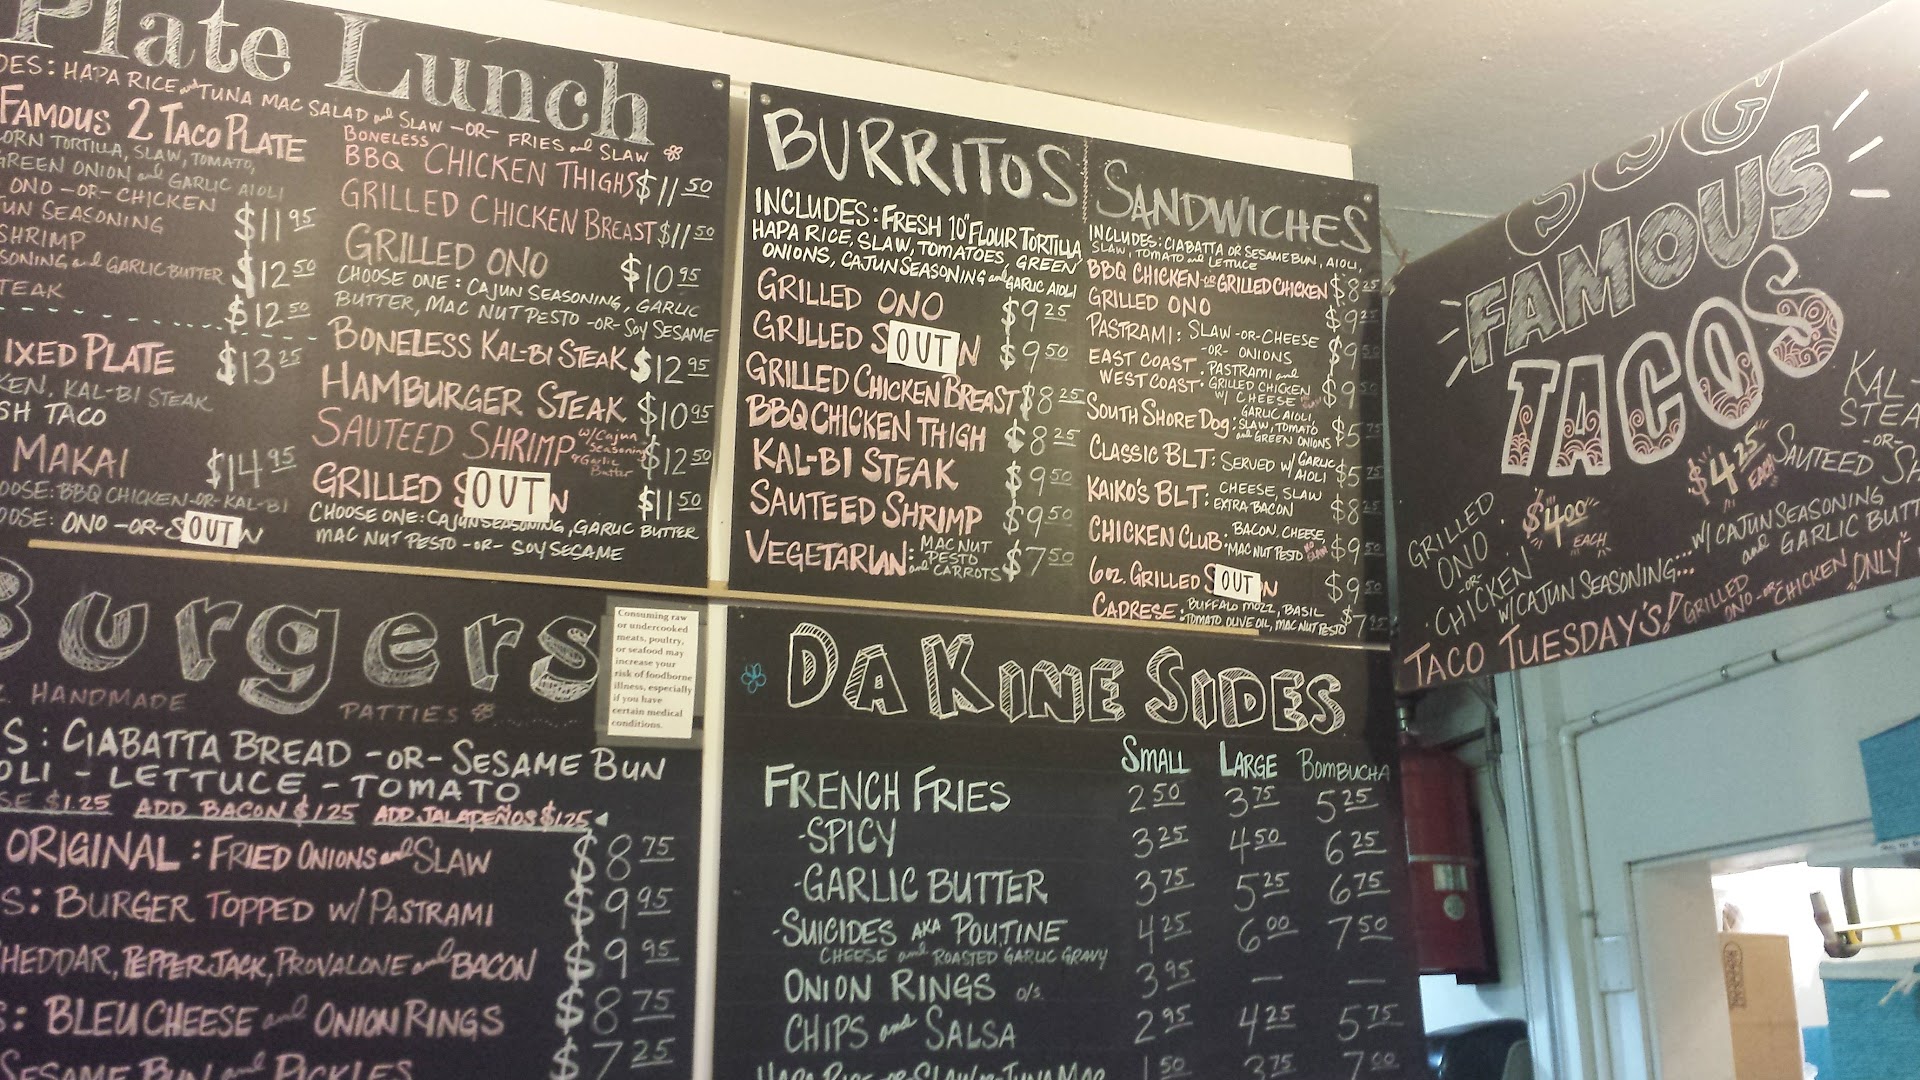 Plate Lunch
DES: HAPA RICE and TUNA MAC SALAD and SLAW -OR- FRIES and SLAW
FAMOUS 2 TACO PLATE
CORN TORTILLA, SLAW, TOMATO,
GREEN ONION and GARLIC AIOLI
ONO -OR- CHICKEN
UN SEASONING $11 95
SHRIMP
SONING and GARLIC BUTTER $12 50
TEAK $12 50
IXED PLATE $13 25
KEN, KAL-BI STEAK
SH TACO
MAKAI $14 95
OOSE: BBQ CHICKEN -OR- KAL-BI
OOSE: ONO -OR- S OUT N
BONELESS
BBQ CHICKEN THIGHS $11 50
GRILLED CHICKEN BREAST $11 50
GRILLED ONO $10 95
CHOOSE ONE: CAJUN SEASONING, GARLIC
BUTTER, MAC NUT PESTO -OR- SOY SESAME
BONELESS KAL-BI STEAK $12 95
HAMBURGER STEAK $10 95
SAUTEED SHRIMP w/ Cajun Seasoning & Garlic Butter $12 50
GRILLED S OUT N $11 50
CHOOSE ONE: CAJUN SEASONING, GARLIC BUTTER
MAC NUT PESTO -OR- SOY SESAME
BURRITOS
INCLUDES: FRESH 10" FLOUR TORTILLA
HAPA RICE, SLAW, TOMATOES, GREEN
ONIONS, CAJUN SEASONING and GARLIC AIOLI
GRILLED ONO $9 25
GRILLED S OUT N $9 50
GRILLED CHICKEN BREAST $8 25
BBQ CHICKEN THIGH $8 25
KAL-BI STEAK $9 50
SAUTEED SHRIMP $9 50
VEGETARIAN: MAC NUT PESTO and CARROTS $7 50
SANDWICHES
INCLUDES: CIABATTA OR SESAME BUN, AIOLI,
SLAW, TOMATO and LETTUCE
BBQ CHICKEN -OR- GRILLED CHICKEN $8 25
GRILLED ONO $9 25
PASTRAMI: SLAW -OR- CHEESE
-OR- ONIONS $9 50
EAST COAST - PASTRAMI and
WEST COAST - GRILLED CHICKEN
W/ CHEESE $9 50
SOUTH SHORE DOG: GARLIC AIOLI
SLAW, TOMATO
and GREEN ONIONS $5 75
CLASSIC BLT: SERVED W/ GARLIC
AIOLI $5 75
KAIKO'S BLT: CHEESE, SLAW
EXTRA BACON $8 25
CHICKEN CLUB: BACON, CHEESE,
MAC NUT PESTO NO SLAW $9 50
6 oz. GRILLED S OUT N $9 50
CAPRESE: BUFFALO MOZZ, BASIL
TOMATO, OLIVE OIL, MAC NUT PESTO $7 25
Burgers
HANDMADE PATTIES
S: CIABATTA BREAD -OR- SESAME BUN
OLI - LETTUCE - TOMATO
SE $1.25 ADD BACON $1.25 ADD JALAPEÑOS $1.25
ORIGINAL: FRIED ONIONS and SLAW $8 75
S: BURGER TOPPED W/ PASTRAMI $9 95
HEDDAR, PEPPER JACK, PROVALONE and BACON $9 95
S: BLEU CHEESE and ONION RINGS $8 75
SESAME BUN and PICKLES $7 25
Consuming raw
or undercooked
meats, poultry,
or seafood may
increase your
risk of foodborne
illness, especially
if you have
certain medical
conditions.
DA KINE SIDES
SMALL LARGE BOMBUCHA
FRENCH FRIES 2 50 3 75 5 25
-SPICY 3 25 4 50 6 25
-GARLIC BUTTER 3 75 5 25 6 75
-SUICIDES AKA POUTINE 4 25 6 00 7 50
CHEESE and ROASTED GARLIC GRAVY
ONION RINGS o/s 3 95 — —
CHIPS and SALSA 2 95 4 25 5 75
HAPA RICE -OR- SLAW -OR- TUNA MAC 1 50 3 75 7 00
FAMOUS
TACOS
GRILLED
ONO
-OR-
CHICKEN
W/ CAJUN SEASONING...
$4 00 EACH
$4 25 EACH
KAL-
STEA
-OR-
SAUTEED SH
W/ CAJUN SEASONING
and GARLIC BUTT
TACO TUESDAY'S! GRILLED
ONO -OR- CHICKEN "ONLY"